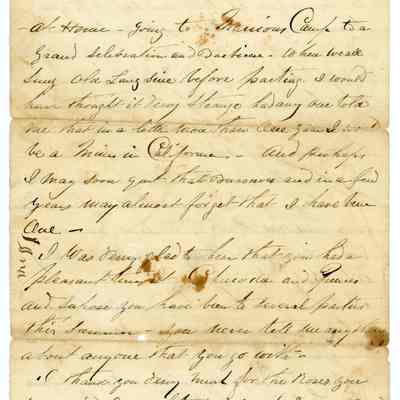 at Home – going to Camp to a
Grand selebration and Barbicue – when we all
Sung Old Lang sine before parting I would
have thought it Very Strange had any one told
me that in a little more than One year I would
be a Miner in California – And perhaps
I may soon quit that Buisness and in a few
Years may almost forget that I have been
One –
I Was Verry glad to hear that you had a
pleasant time at and
and supose you have been to Several parties
this Summer – you never tell me any thing
about anyone that you go with –
I thank you Verry much for the Roses you